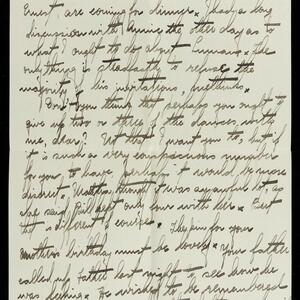 Ernest are coming for dinner. I had a long
discussion with Annie the other day as to
what I ought to do about Lumans. The
only thing is steadfastly to refuse the
majority of his invitations, methinks.
Don't you think that perhaps you ought to
give up two or three of the dances with
me, dear? Not that I want you to, but if
it is such a very conspicuous number
for you to have, perhaps it would be more
discreet. Mother thought it was so, as
she said I'd kept only four with her. But
that is different of course. The pin for your
mother's birthday must be lovely. Your father
called up Father last night to see how he
was feeling. He wished to be remembered